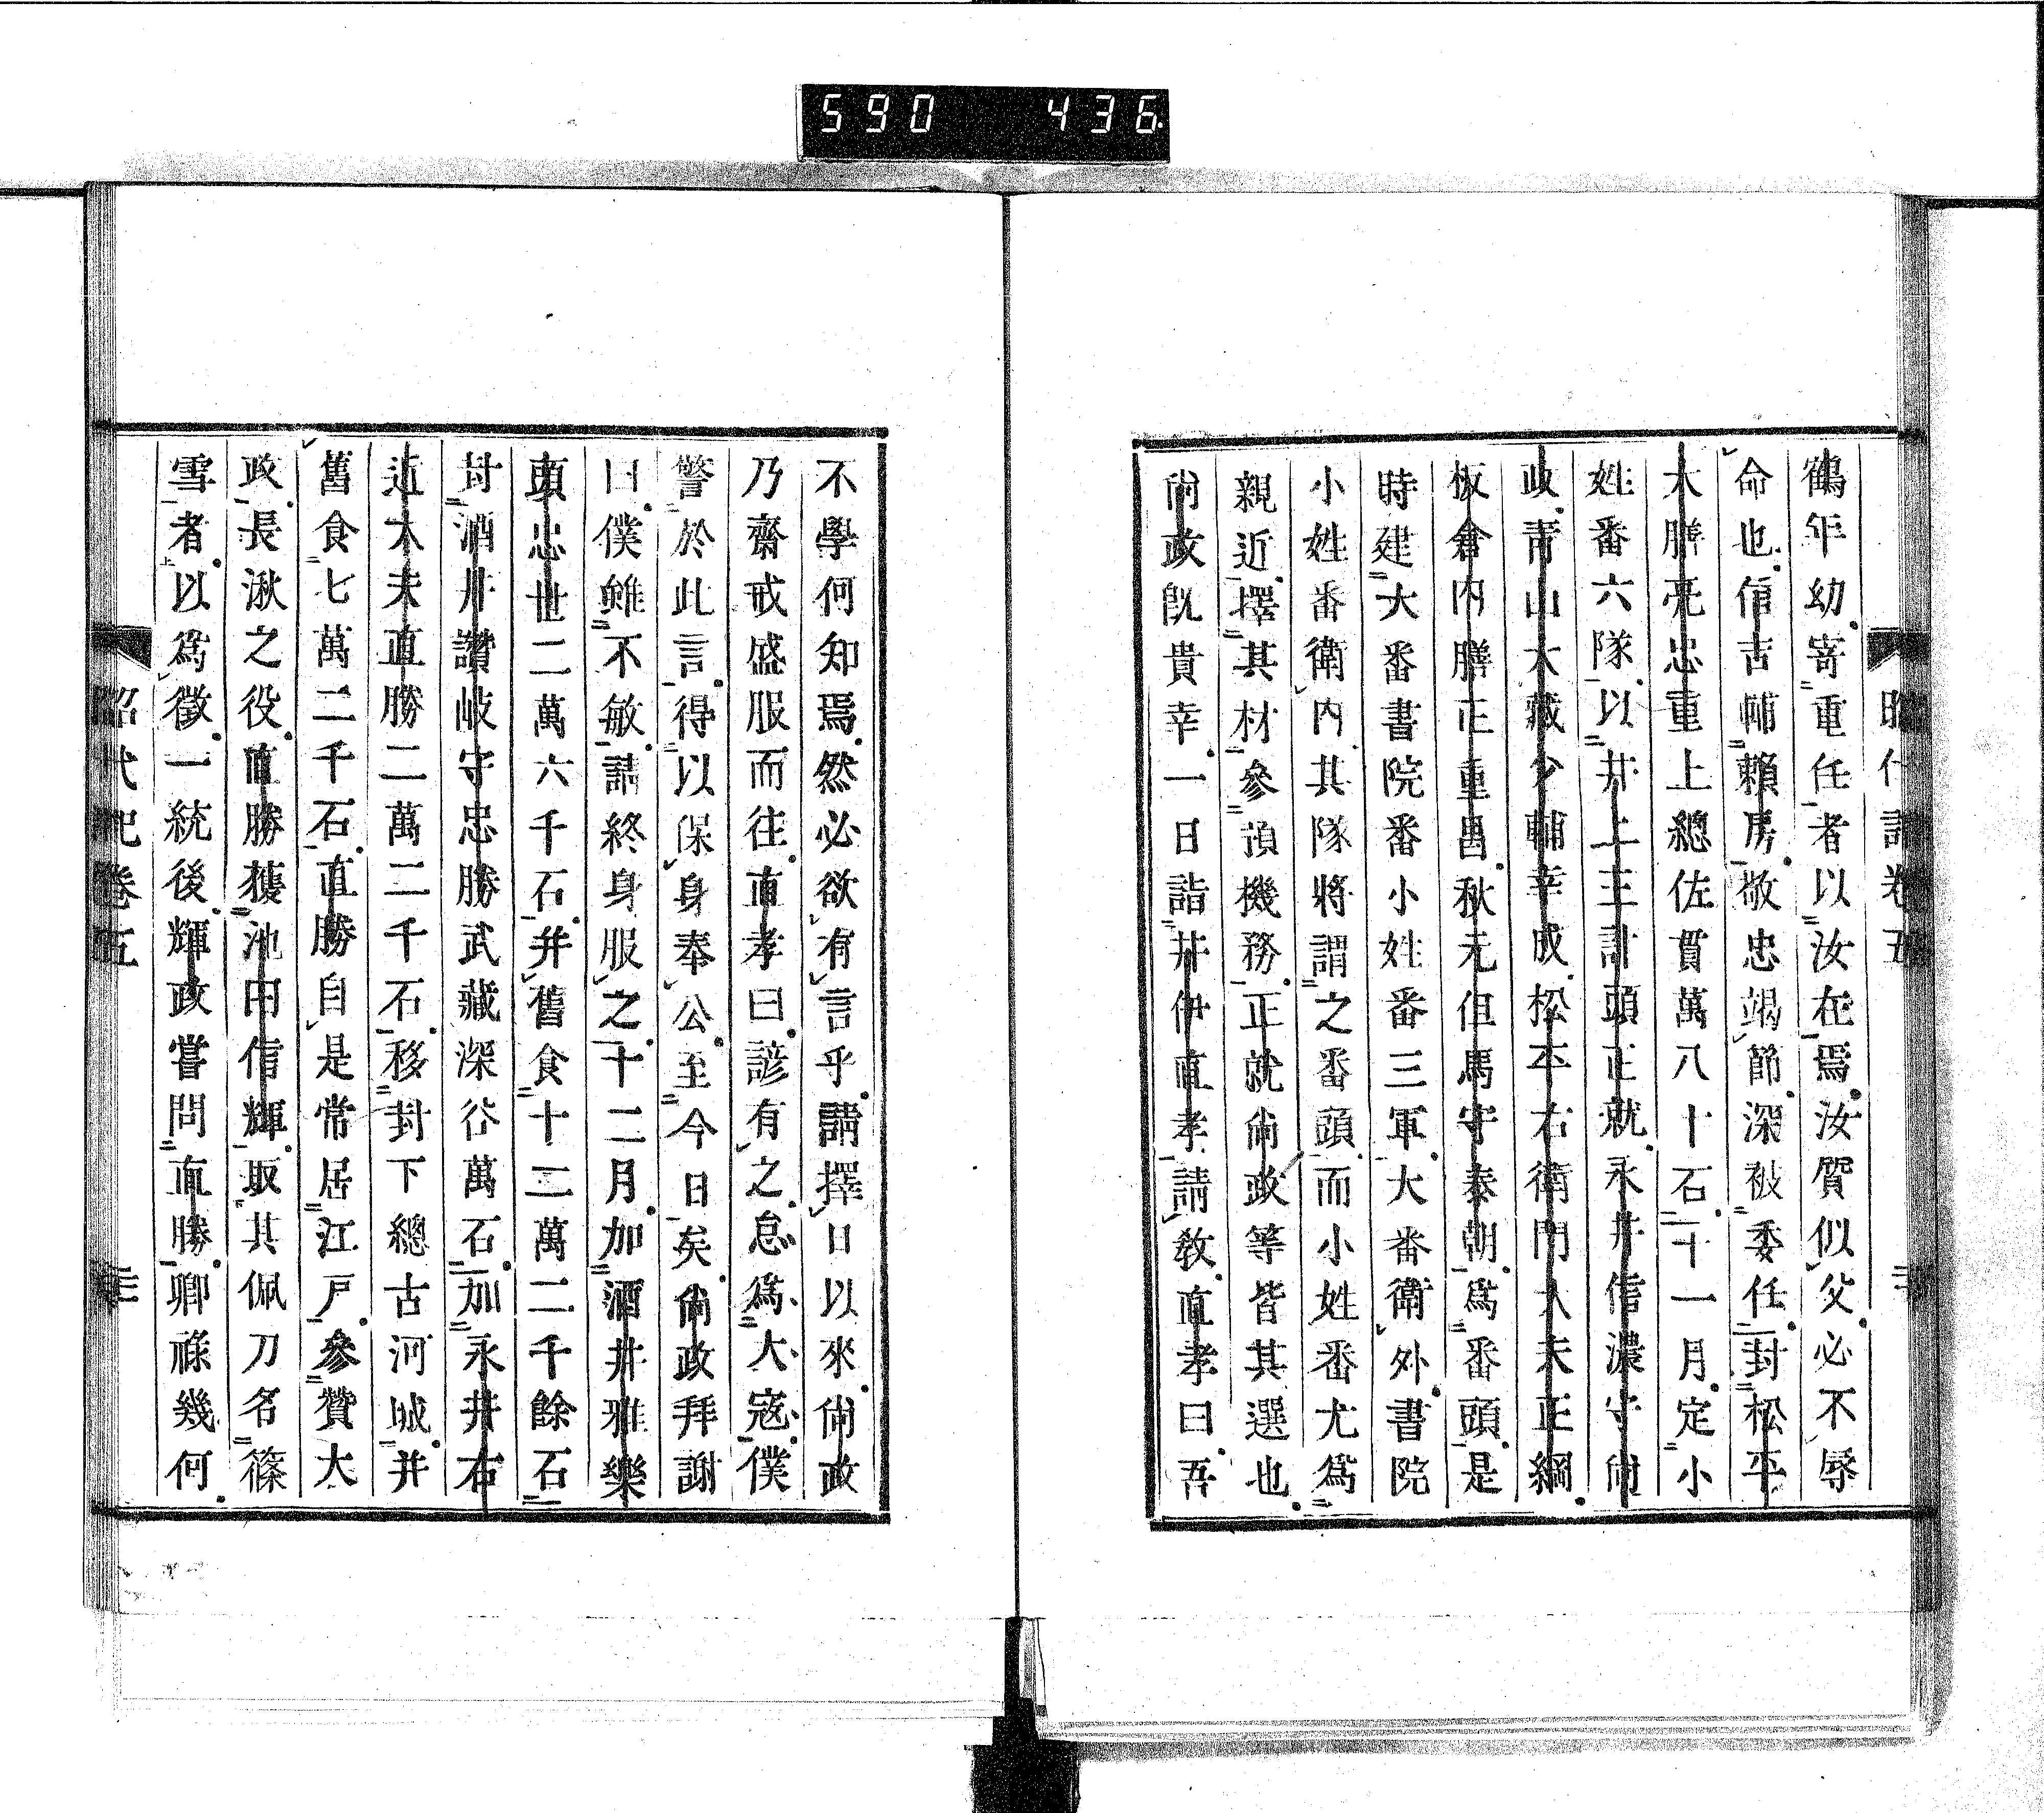 590 436
昭代記卷五
鶴年幼寄重任者以汝在焉汝賀似父必不辱
命也信吉輔賴房敬忠竭節深被委任封松平
大膳亮忠重上總佐貫萬八十石十一月定小
姓番六隊以井上主計頭正就永井信濃守尚
政青山大藏少輔幸成松平右衛門大夫正綱
板倉内膳正重昌秋元但馬守泰朝爲番頭是
時建大番書院番小姓番三軍大番衛外書院
小姓番衛内其隊將謂之番頭而小姓番尤爲
親近擇其材參預機務正就尚政等皆其選也
尚政旣貴幸一日詣井伊直孝請敎直孝曰吾
不學何知焉然必欲有言乎請擇日以來尚政
乃齋戒盛服而往直孝曰諺有之怠爲大寇僕
警於此言得以保身奉公至今日矣尚政拜謝
曰僕雖不敏請終身服之十二月加酒井雅樂
頭忠世二萬六千石并舊食十二萬二千餘石
封酒井讚岐守忠勝武藏深谷萬石加永井右
近大夫直勝二萬二千石移封下總古河城并
舊食七萬二千石直勝自是常居江戸參贊大
政長湫之役直勝獲池田信輝取其佩刀名篠
雪者以爲徵一統後輝政嘗問直勝卿祿幾何
昭代記卷五